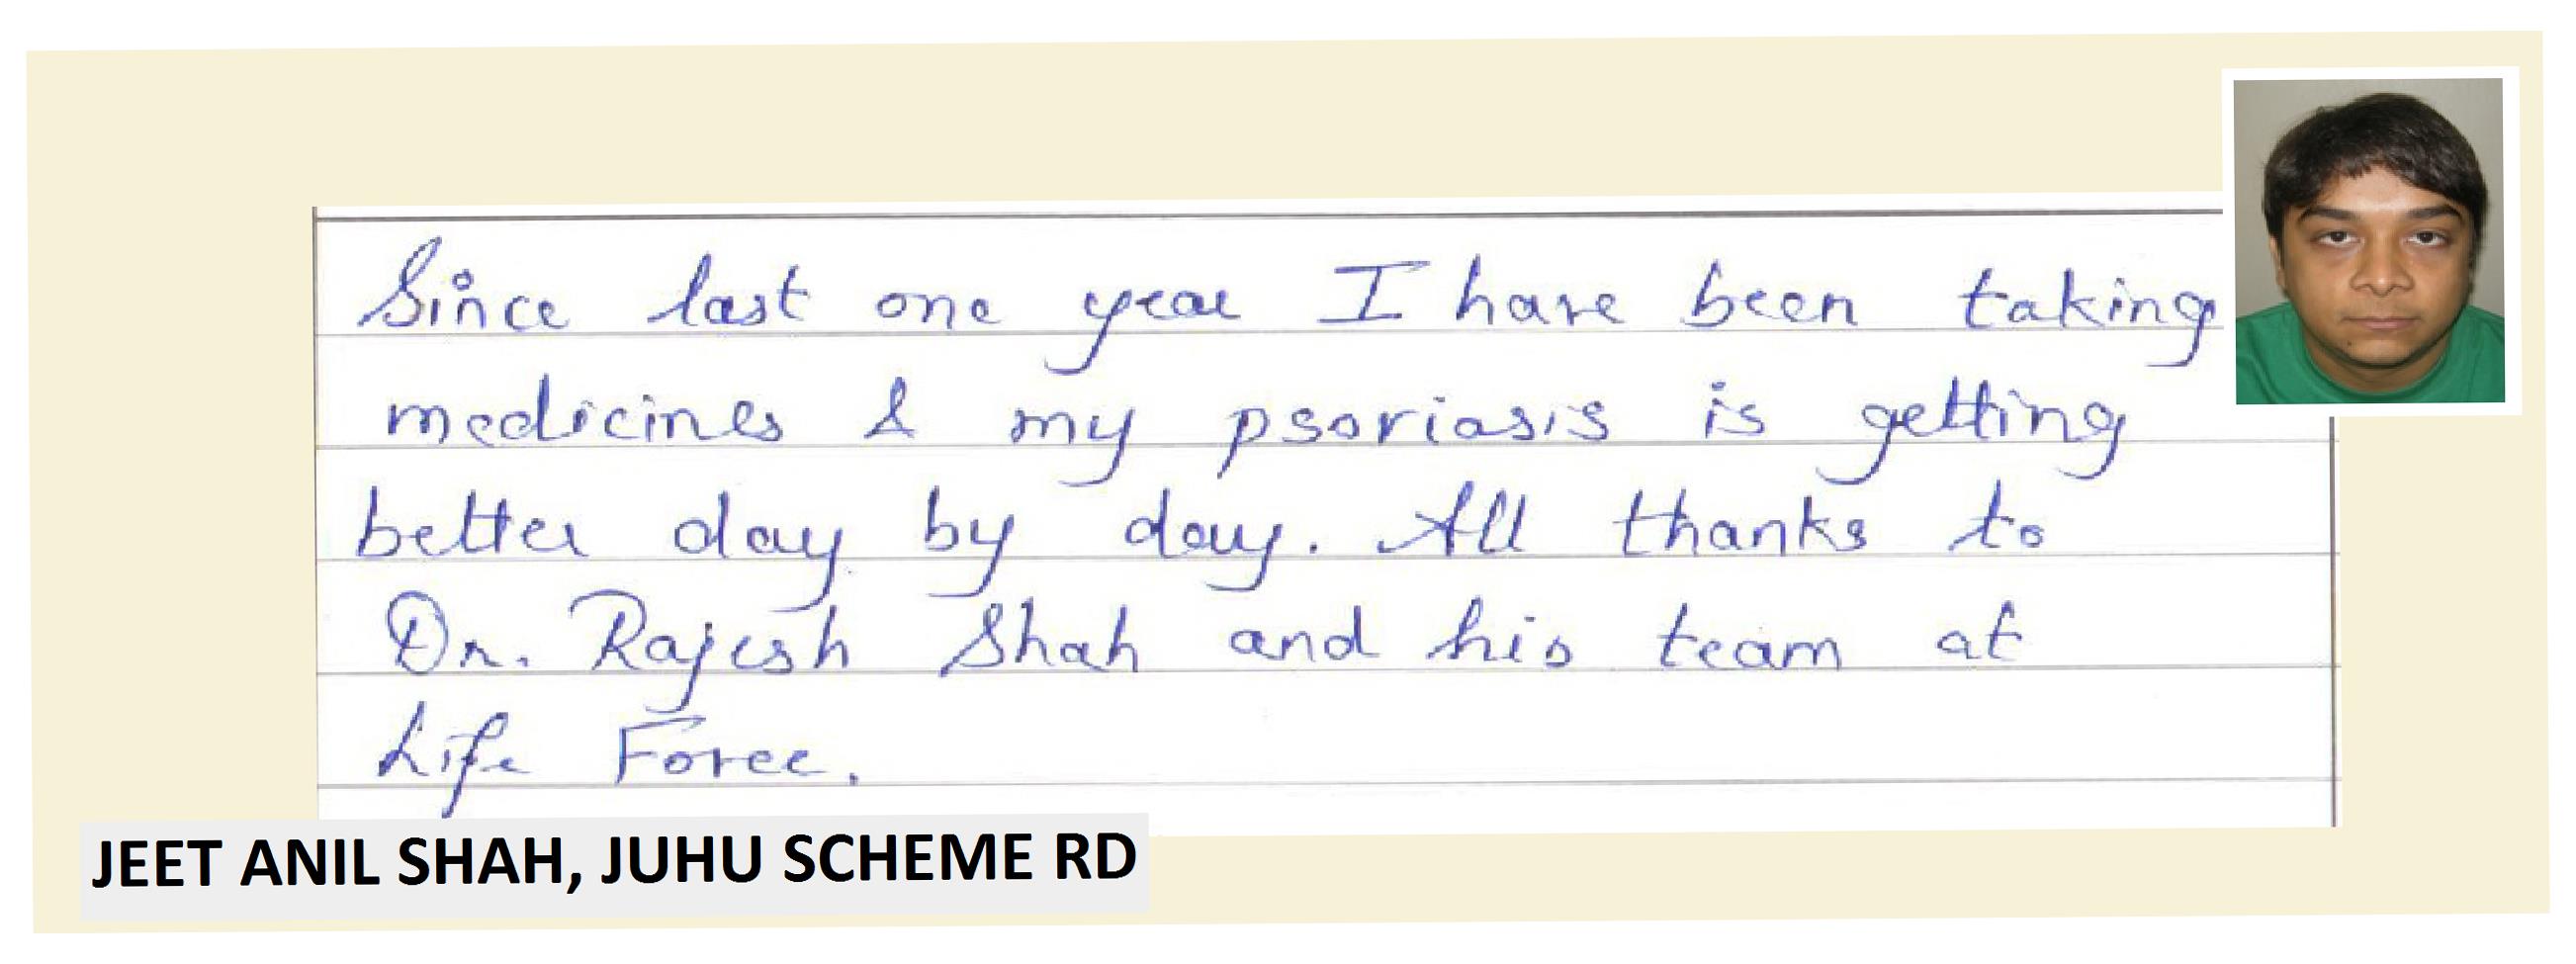 Since last one year I have been taking
medicines & my psoriasis is getting
better day by day. All thanks to
Dr. Rajesh Shah and his team at
Life Force.
JEET ANIL SHAH, JUHU SCHEME RD